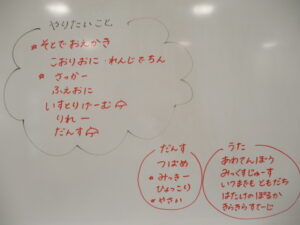 やりたいこと
そとでおえかき
こおりおに・れんじでちん
さっかー
ふえおに
いすとりげーむ
りれー
だんす
だんす
つばめ
みっきー
ひょっこり
やさい
うた
あわてんぼう
みっくすじゅーす
いつまでも ともだち
はたけのぽるか
きらきらすてーじ